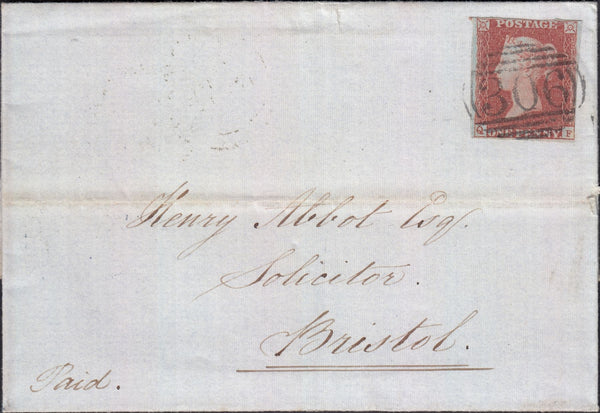 POSTAGE
306
Q F
ONE PENNY
Henry Abbot Esq.
Solicitor.
Bristol.
Paid.